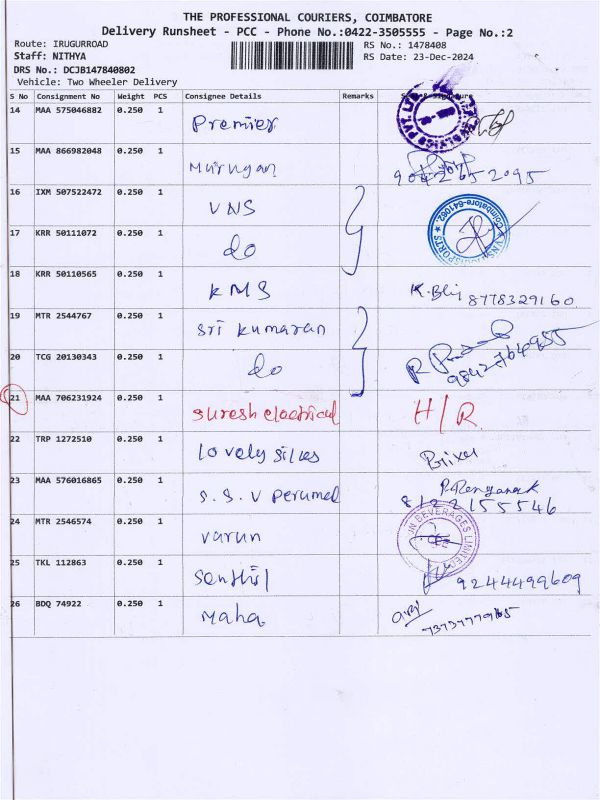 THE PROFESSIONAL COURIERS, COIMBATORE
Delivery Runsheet - PCC - Phone No.:0422-3505555 - Page No.:2
Route: IRUGURROAD RS No.: 1478408
Staff: NITHYA RS Date: 23-Dec-2024
DRS No.: DCJB147840802
Vehicle: Two Wheeler Delivery
S No Consignment No Weight PCS Consignee Details Remarks
14 MAA 575046882 0.250 1 Premier
15 MAA 866982048 0.250 1 Murugan 9042652095
16 IXM 507522472 0.250 1 VNS
17 KRR 50111072 0.250 1 do
18 KRR 50110565 0.250 1 KMS 8778329160
19 MTR 2544767 0.250 1 Sri kumaran
20 TCG 20130343 0.250 1 do
21 MAA 706231924 0.250 1 Suresh electrical H/R
22 TRP 1272510 0.250 1 lovely silks
23 MAA 576016865 0.250 1 S.S.V Perumal 8122155546
24 MTR 2546574 0.250 1 varun
25 TKL 112863 0.250 1 Senthil 9244499609
26 BDQ 74922 0.250 1 Maha